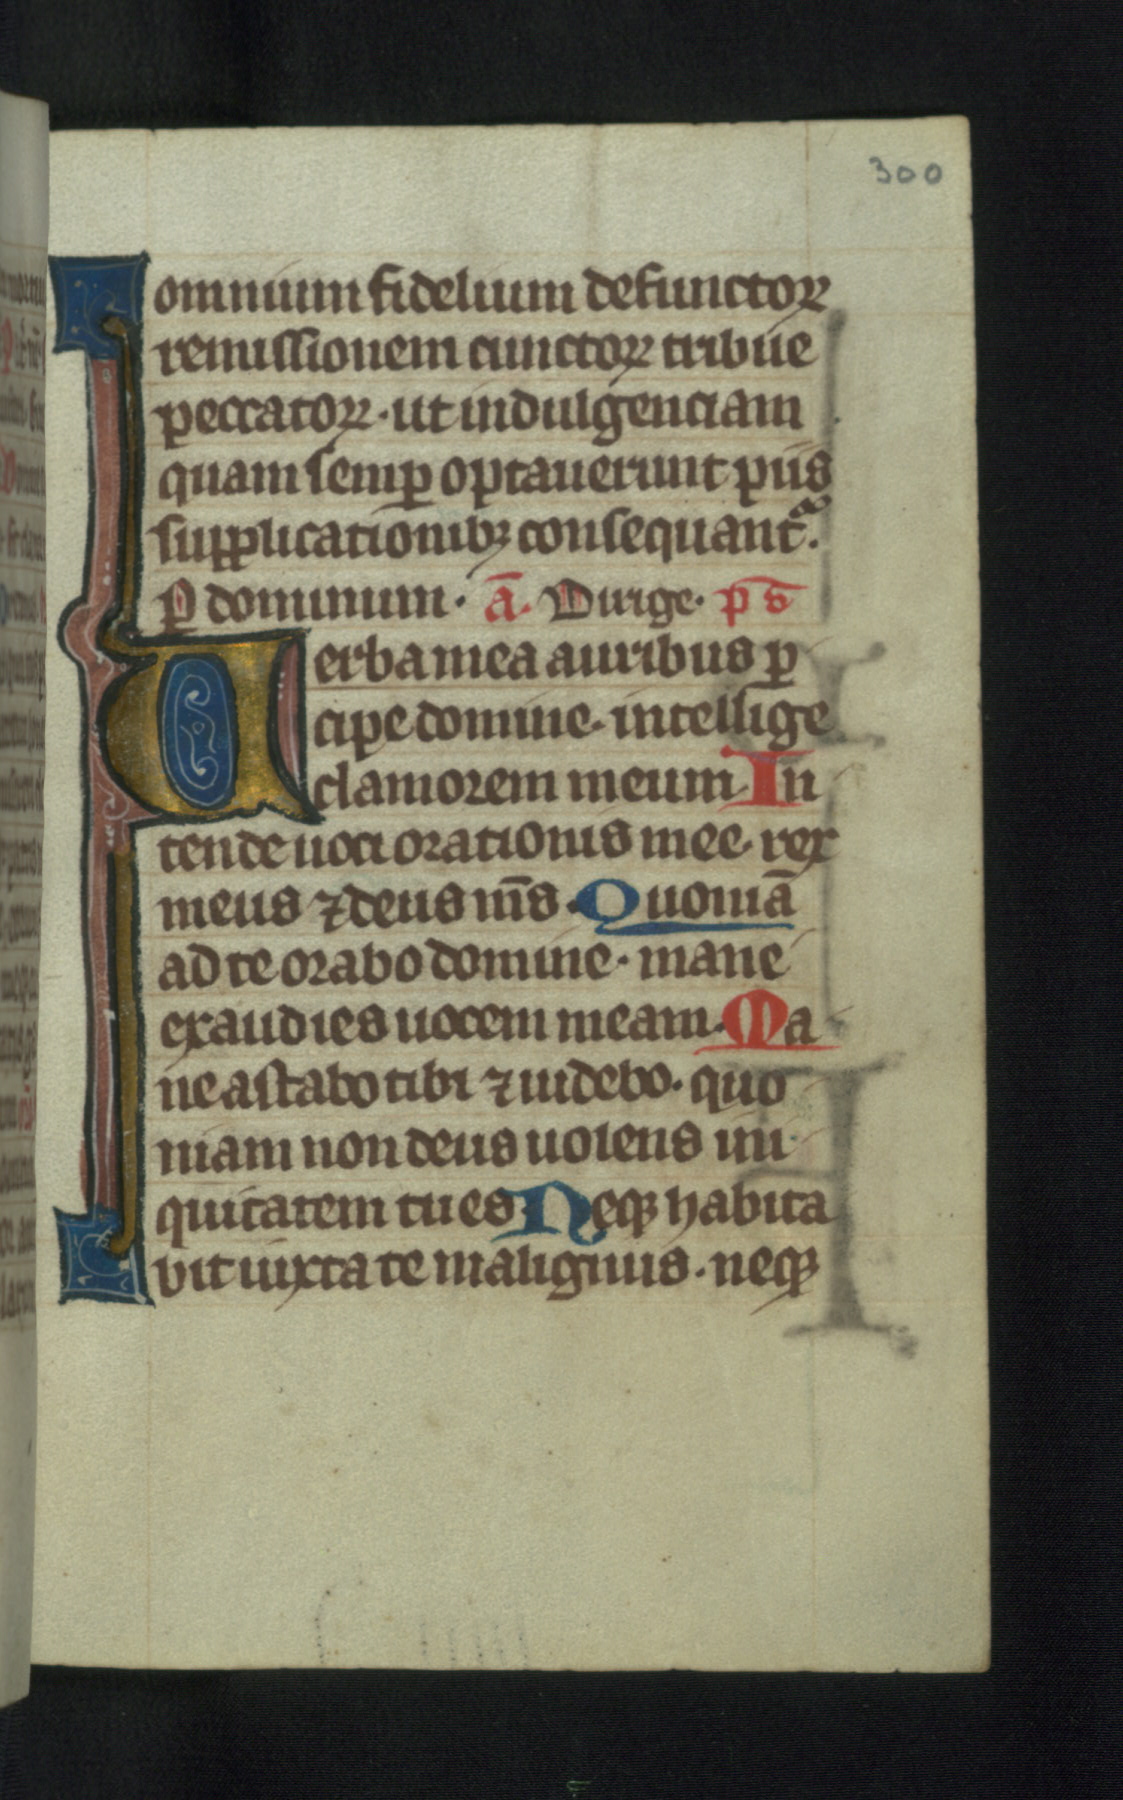 300
omnium fidelium defunctoꝝ
remissionem cunctoꝝ tribue
peccatoꝝ · ut indulgenciam
quam semꝑ optauerunt piis
supplicationibꝫ consequant᷑.
ꝑ dominum · ā. Dirige · p̄s
Uerba mea auribus ꝑ
cipe domine · intellige
clamorem meum In
tende uoci orationis mee · rex
meus ⁊ deus m̄s · Quoniā
ad te orabo domine · mane
exaudies uocem meam · Ma
ne astabo tibi ⁊ uidebo · quo
niam non deus uolens ini
quitatem tu es Neqꝫ habita
bit iuxta te malignus · neqꝫ